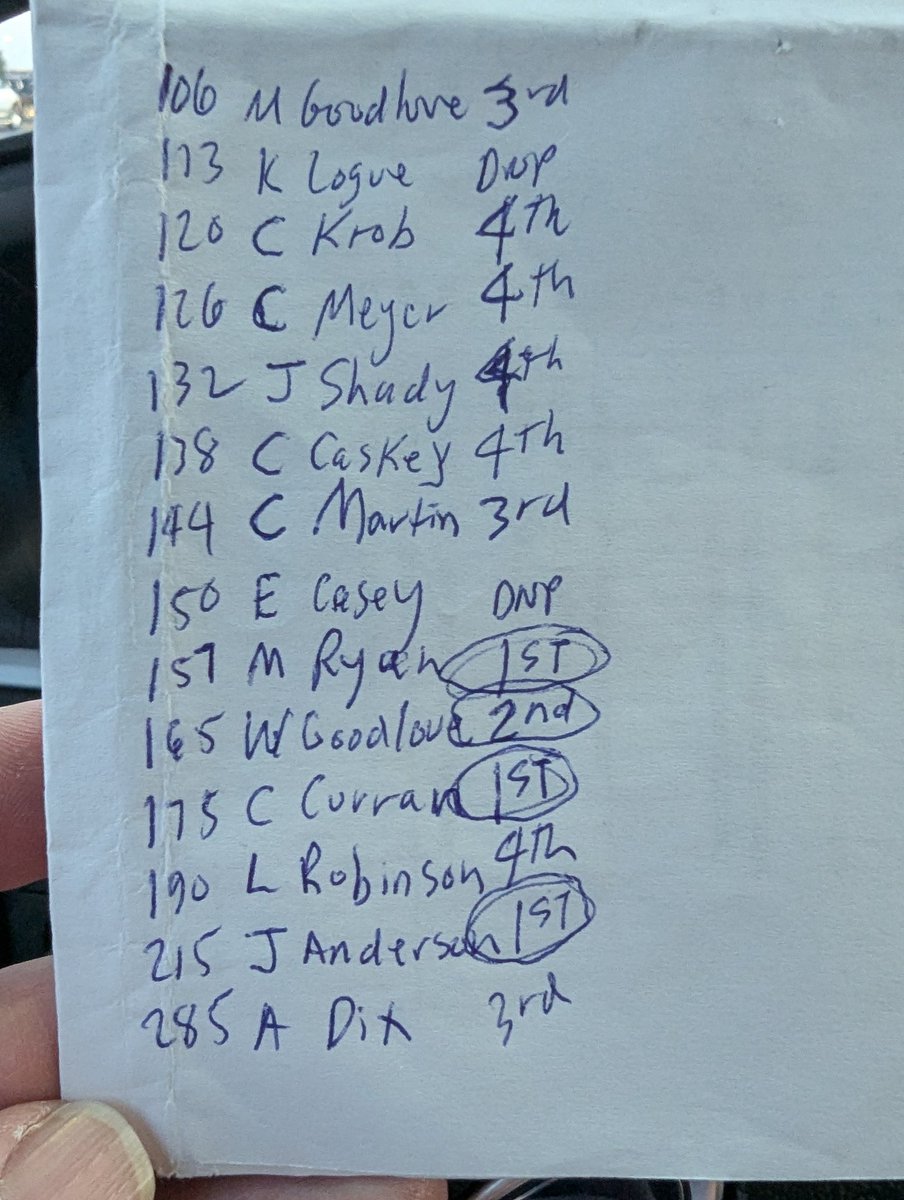 106 M Goodlove 3rd
113 K Logue DNP
120 C Krob 4th
126 C Meyer 4th
132 J Shady 4th
138 C Caskey 4Th
144 C Martin 3rd
150 E Casey DNP
157 M Ryan 1ST
165 W Goodlove 2nd
175 C Curran 1ST
190 L Robinson 4Th
215 J Anderson 1ST
285 A Dix 3rd